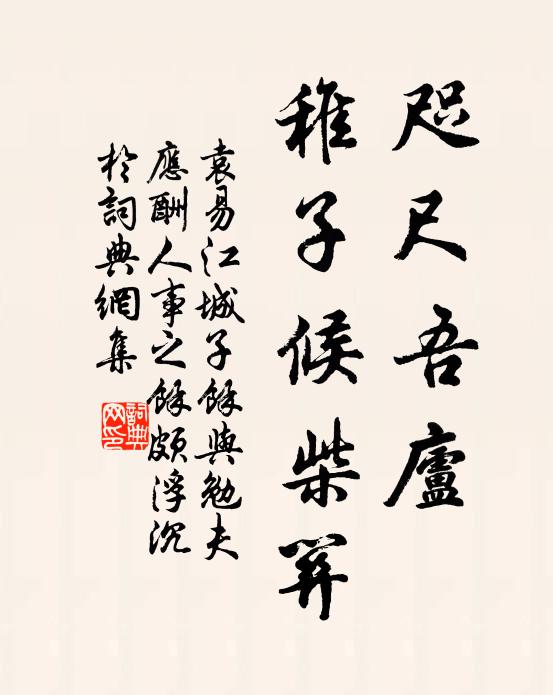 咫尺吾廬
稚子候柴關
袁易江城子餘與勉夫
應酬人事之餘頗浮沉
於詞典網集
詞典
网印